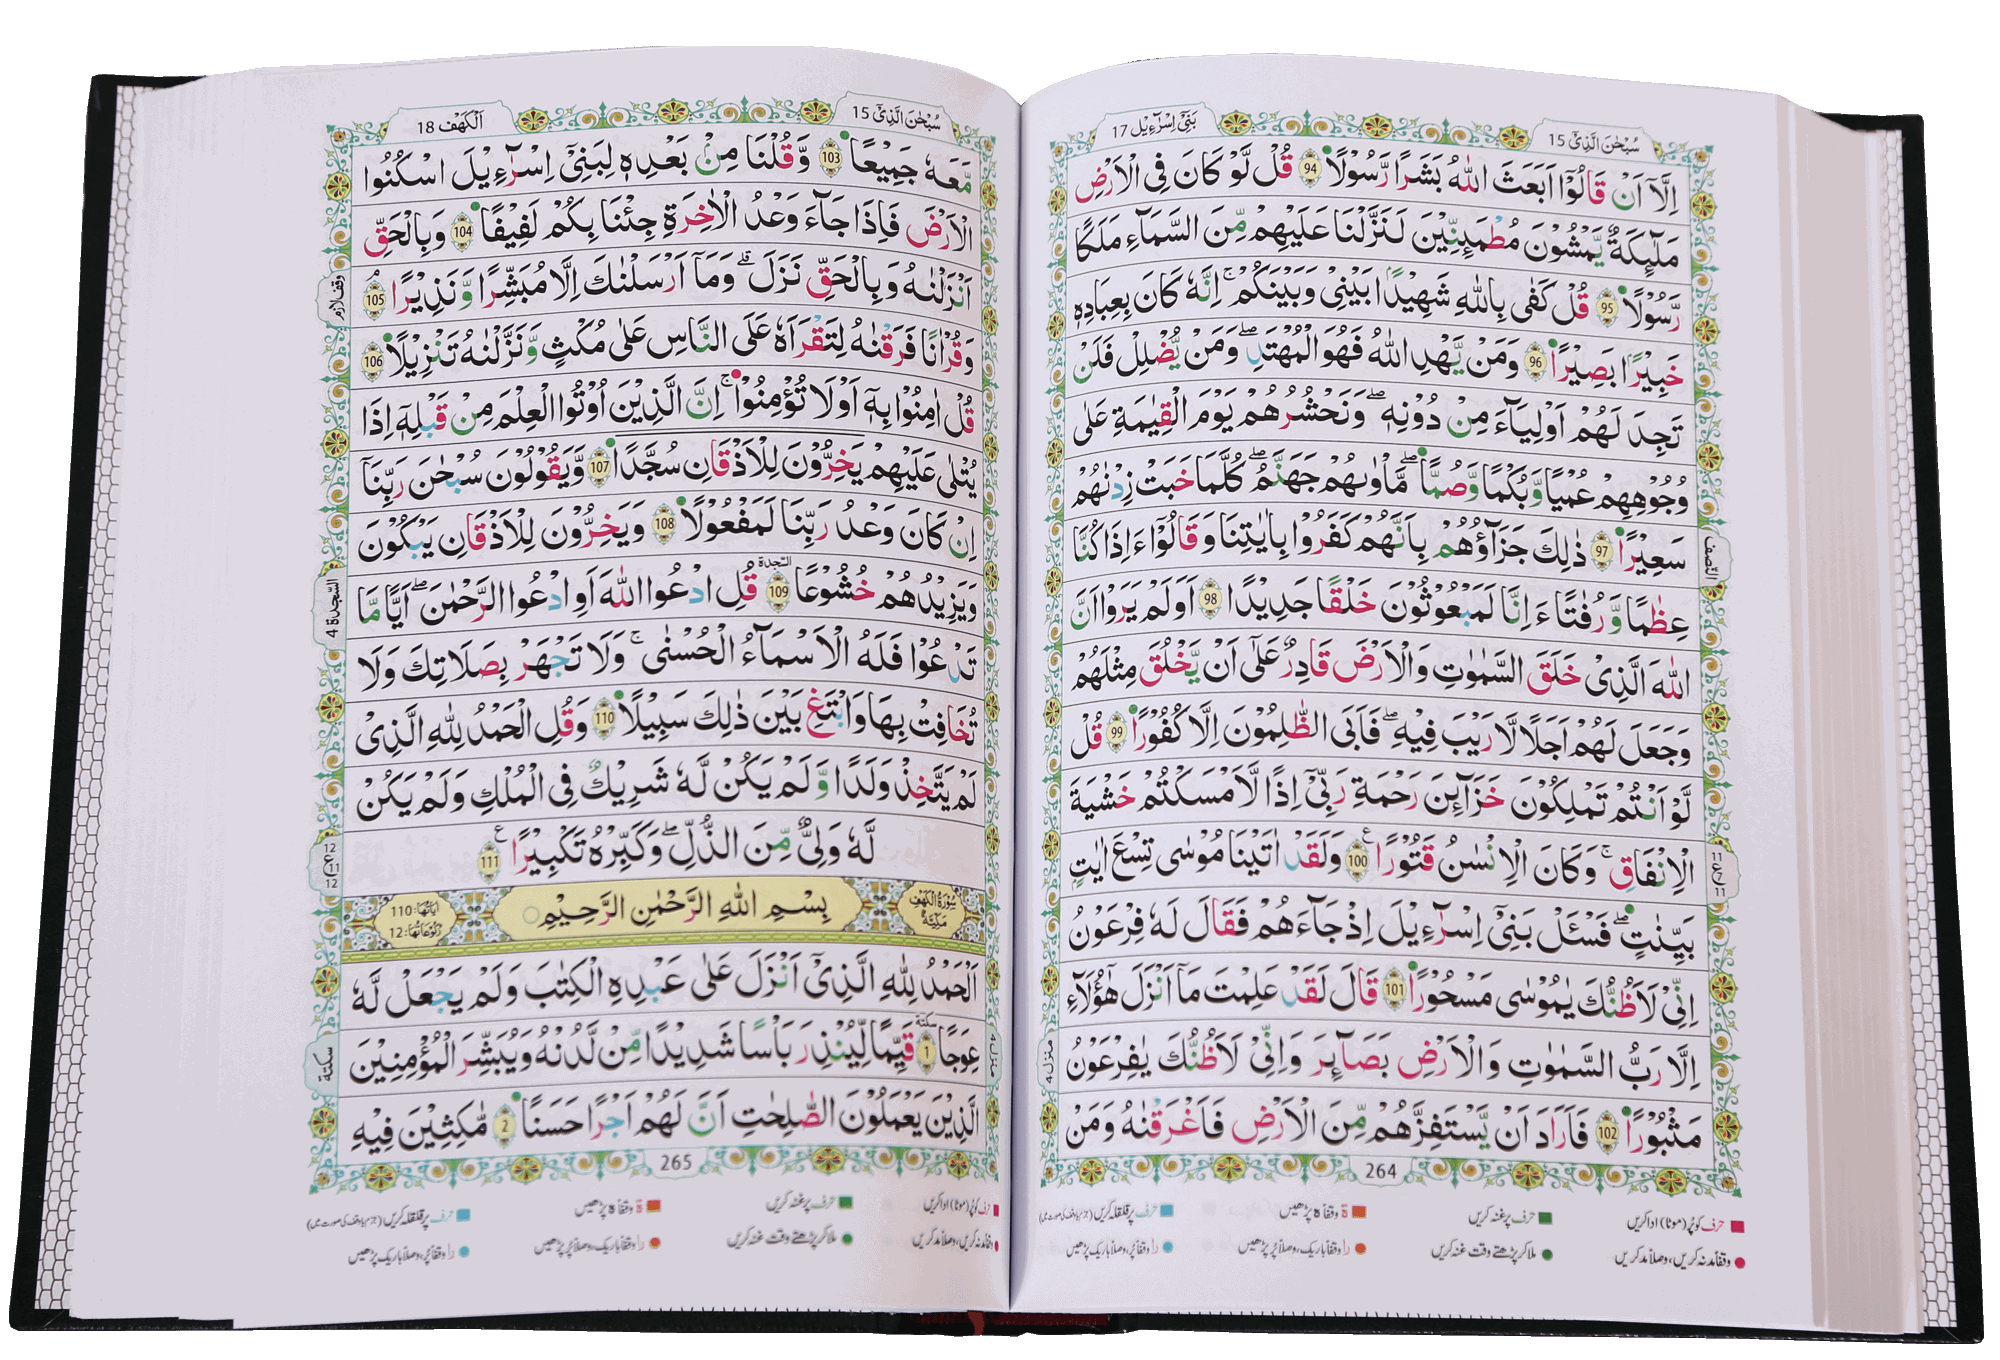 سُبْحٰنَ الَّذِیْۤ 15
بَنِیْۤ اِسْرَآءِیْل 17
اِلَّاۤ اَنْ قَالُوْۤا اَبَعَثَ اللّٰهُ بَشَرًا رَّسُوْلًا 94 قُلْ لَّوْ كَانَ فِی الْاَرْضِ
مَلٰٓئِكَةٌ یَّمْشُوْنَ مُطْمَئِنِّیْنَ لَنَزَّلْنَا عَلَیْهِمْ مِّنَ السَّمَآءِ مَلَكًا
رَّسُوْلًا 95 قُلْ كَفٰی بِاللّٰهِ شَهِیْدًۢا بَیْنِیْ وَبَیْنَكُمْ ؕ اِنَّهٗ كَانَ بِعِبَادِهٖ
خَبِیْرًۢا بَصِیْرًا 96 وَمَنْ یَّهْدِ اللّٰهُ فَهُوَ الْمُهْتَدِ ۚ وَمَنْ یُّضْلِلْ فَلَنْ
تَجِدَ لَهُمْ اَوْلِیَآءَ مِنْ دُوْنِهٖ ؕ وَنَحْشُرُهُمْ یَوْمَ الْقِیٰمَةِ عَلٰی
وُجُوْهِهِمْ عُمْیًا وَّبُكْمًا وَّصُمًّا ؕ مَاْوٰىهُمْ جَهَنَّمُ ؕ كُلَّمَا خَبَتْ زِدْنٰهُمْ
سَعِیْرًا 97 ذٰلِكَ جَزَآؤُهُمْ بِاَنَّهُمْ كَفَرُوْا بِاٰیٰتِنَا وَقَالُوْۤا ءَاِذَا كُنَّا
عِظَامًا وَّرُفَاتًا ءَاِنَّا لَمَبْعُوْثُوْنَ خَلْقًا جَدِیْدًا 98 اَوَلَمْ یَرَوْا اَنَّ
اللّٰهَ الَّذِیْ خَلَقَ السَّمٰوٰتِ وَالْاَرْضَ قَادِرٌ عَلٰۤی اَنْ یَّخْلُقَ مِثْلَهُمْ
وَجَعَلَ لَهُمْ اَجَلًا لَّا رَیْبَ فِیْهِ ؕ فَاَبَی الظّٰلِمُوْنَ اِلَّا كُفُوْرًا 99 قُلْ
لَّوْ اَنْتُمْ تَمْلِكُوْنَ خَزَآئِنَ رَحْمَةِ رَبِّیْۤ اِذًا لَّاَمْسَكْتُمْ خَشْیَةَ
الْاِنْفَاقِ ؕ وَكَانَ الْاِنْسَانُ قَتُوْرًا 100 وَلَقَدْ اٰتَیْنَا مُوْسٰی تِسْعَ اٰیٰتٍۭ
بَیِّنٰتٍ فَسْئَلْ بَنِیْۤ اِسْرَآءِیْلَ اِذْ جَآءَهُمْ فَقَالَ لَهٗ فِرْعَوْنُ
اِنِّیْ لَاَظُنُّكَ یٰمُوْسٰی مَسْحُوْرًا 101 قَالَ لَقَدْ عَلِمْتَ مَاۤ اَنْزَلَ هٰۤؤُلَآءِ
اِلَّا رَبُّ السَّمٰوٰتِ وَالْاَرْضِ بَصَآئِرَ وَاِنِّیْ لَاَظُنُّكَ یٰفِرْعَوْنُ
مَثْبُوْرًا 102 فَاَرَادَ اَنْ یَّسْتَفِزَّهُمْ مِّنَ الْاَرْضِ فَاَغْرَقْنٰهُ وَمَنْ
النّصف
11 ع 11
منزل 4
264
حرف کو پُر (موٹا) ادا کریں
حرف پر غنہ کریں
ۃ وقفاً ہ پڑھیں
حرف پر قلقلہ کریں (جزم یا وقف کی صورت میں)
وقفاً مد نہ کریں، وصلاً مد کریں
ملا کر پڑھتے وقت غنہ کریں
را وقفاً باریک، وصلاً پُر پڑھیں
را وقفاً پُر، وصلاً باریک پڑھیں
سُبْحٰنَ الَّذِیْۤ 15
اَلْكَهْف 18
مَّعَهٗ جَمِیْعًا 103 وَّقُلْنَا مِنْۢ بَعْدِهٖ لِبَنِیْۤ اِسْرَآءِیْلَ اسْكُنُوا
الْاَرْضَ فَاِذَا جَآءَ وَعْدُ الْاٰخِرَةِ جِئْنَا بِكُمْ لَفِیْفًا 104 وَبِالْحَقِّ
اَنْزَلْنٰهُ وَبِالْحَقِّ نَزَلَ ؕ وَمَاۤ اَرْسَلْنٰكَ اِلَّا مُبَشِّرًا وَّنَذِیْرًا 105
وَقُرْاٰنًا فَرَقْنٰهُ لِتَقْرَاَهٗ عَلَی النَّاسِ عَلٰی مُكْثٍ وَّنَزَّلْنٰهُ تَنْزِیْلًا 106
قُلْ اٰمِنُوْا بِهٖۤ اَوْ لَا تُؤْمِنُوْا ؕ اِنَّ الَّذِیْنَ اُوْتُوا الْعِلْمَ مِنْ قَبْلِهٖۤ اِذَا
یُتْلٰی عَلَیْهِمْ یَخِرُّوْنَ لِلْاَذْقَانِ سُجَّدًا 107 وَّیَقُوْلُوْنَ سُبْحٰنَ رَبِّنَاۤ
اِنْ كَانَ وَعْدُ رَبِّنَا لَمَفْعُوْلًا 108 وَیَخِرُّوْنَ لِلْاَذْقَانِ یَبْكُوْنَ
وَیَزِیْدُهُمْ خُشُوْعًا السّجدة 109 قُلِ ادْعُوا اللّٰهَ اَوِ ادْعُوا الرَّحْمٰنَ ؕ اَیًّا مَّا
تَدْعُوْا فَلَهُ الْاَسْمَآءُ الْحُسْنٰی ۚ وَلَا تَجْهَرْ بِصَلَاتِكَ وَلَا
تُخَافِتْ بِهَا وَابْتَغِ بَیْنَ ذٰلِكَ سَبِیْلًا 110 وَقُلِ الْحَمْدُ لِلّٰهِ الَّذِیْ
لَمْ یَتَّخِذْ وَلَدًا وَّلَمْ یَكُنْ لَّهٗ شَرِیْكٌ فِی الْمُلْكِ وَلَمْ یَكُنْ
لَّهٗ وَلِیٌّ مِّنَ الذُّلِّ وَكَبِّرْهُ تَكْبِیْرًا 111
سُوْرَةُ الْكَهْفِ مَكِّیَّةٌ
بِسْمِ اللّٰهِ الرَّحْمٰنِ الرَّحِیْمِ
اٰیَاتُهَا: 110
رُكُوْعَاتُهَا: 12
اَلْحَمْدُ لِلّٰهِ الَّذِیْۤ اَنْزَلَ عَلٰی عَبْدِهِ الْكِتٰبَ وَلَمْ یَجْعَلْ لَّهٗ
عِوَجًا سكتة 1 قَیِّمًا لِّیُنْذِرَ بَاْسًا شَدِیْدًا مِّنْ لَّدُنْهُ وَیُبَشِّرَ الْمُؤْمِنِیْنَ
الَّذِیْنَ یَعْمَلُوْنَ الصّٰلِحٰتِ اَنَّ لَهُمْ اَجْرًا حَسَنًا 2 مَّاكِثِیْنَ فِیْهِ
وقف لازم
السّجدة 4
12 ع 12
سكتة
منزل 4
265
حرف کو پُر (موٹا) ادا کریں
حرف پر غنہ کریں
ۃ وقفاً ہ پڑھیں
حرف پر قلقلہ کریں (جزم یا وقف کی صورت میں)
وقفاً مد نہ کریں، وصلاً مد کریں
ملا کر پڑھتے وقت غنہ کریں
را وقفاً باریک، وصلاً پُر پڑھیں
را وقفاً پُر، وصلاً باریک پڑھیں